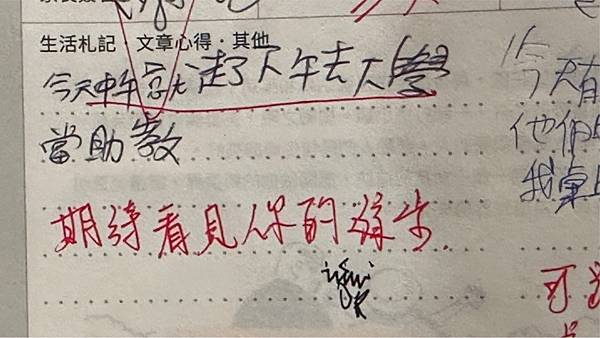 生活札記・文章心得・其他
今天中午就走了下午去大學
當助教
期待看見你的
今天有
他們
我
可